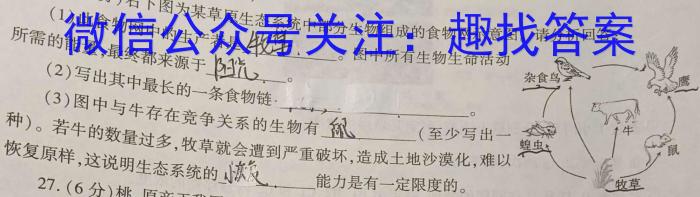 右下图为某草原生态系统中部分生物组成的食物网
微信公众号关注：趣找答案
(1) 牧草 。图中所有生物生命活动
所需的 最终都来源于 阳光 。
(2)写出其中最长的一条食物链
(3)图中与牛存在竞争关系的生物有 鼠 (至少写出一
种)。若牛的数量过多,牧草就会遭到严重破坏,造成土地沙漠化,难以
恢复原样,这说明生态系统的 能力是有一定限度的。
27.(6分)桃
杂食鸟
鹰
牛
蝗虫
鼠
牧草